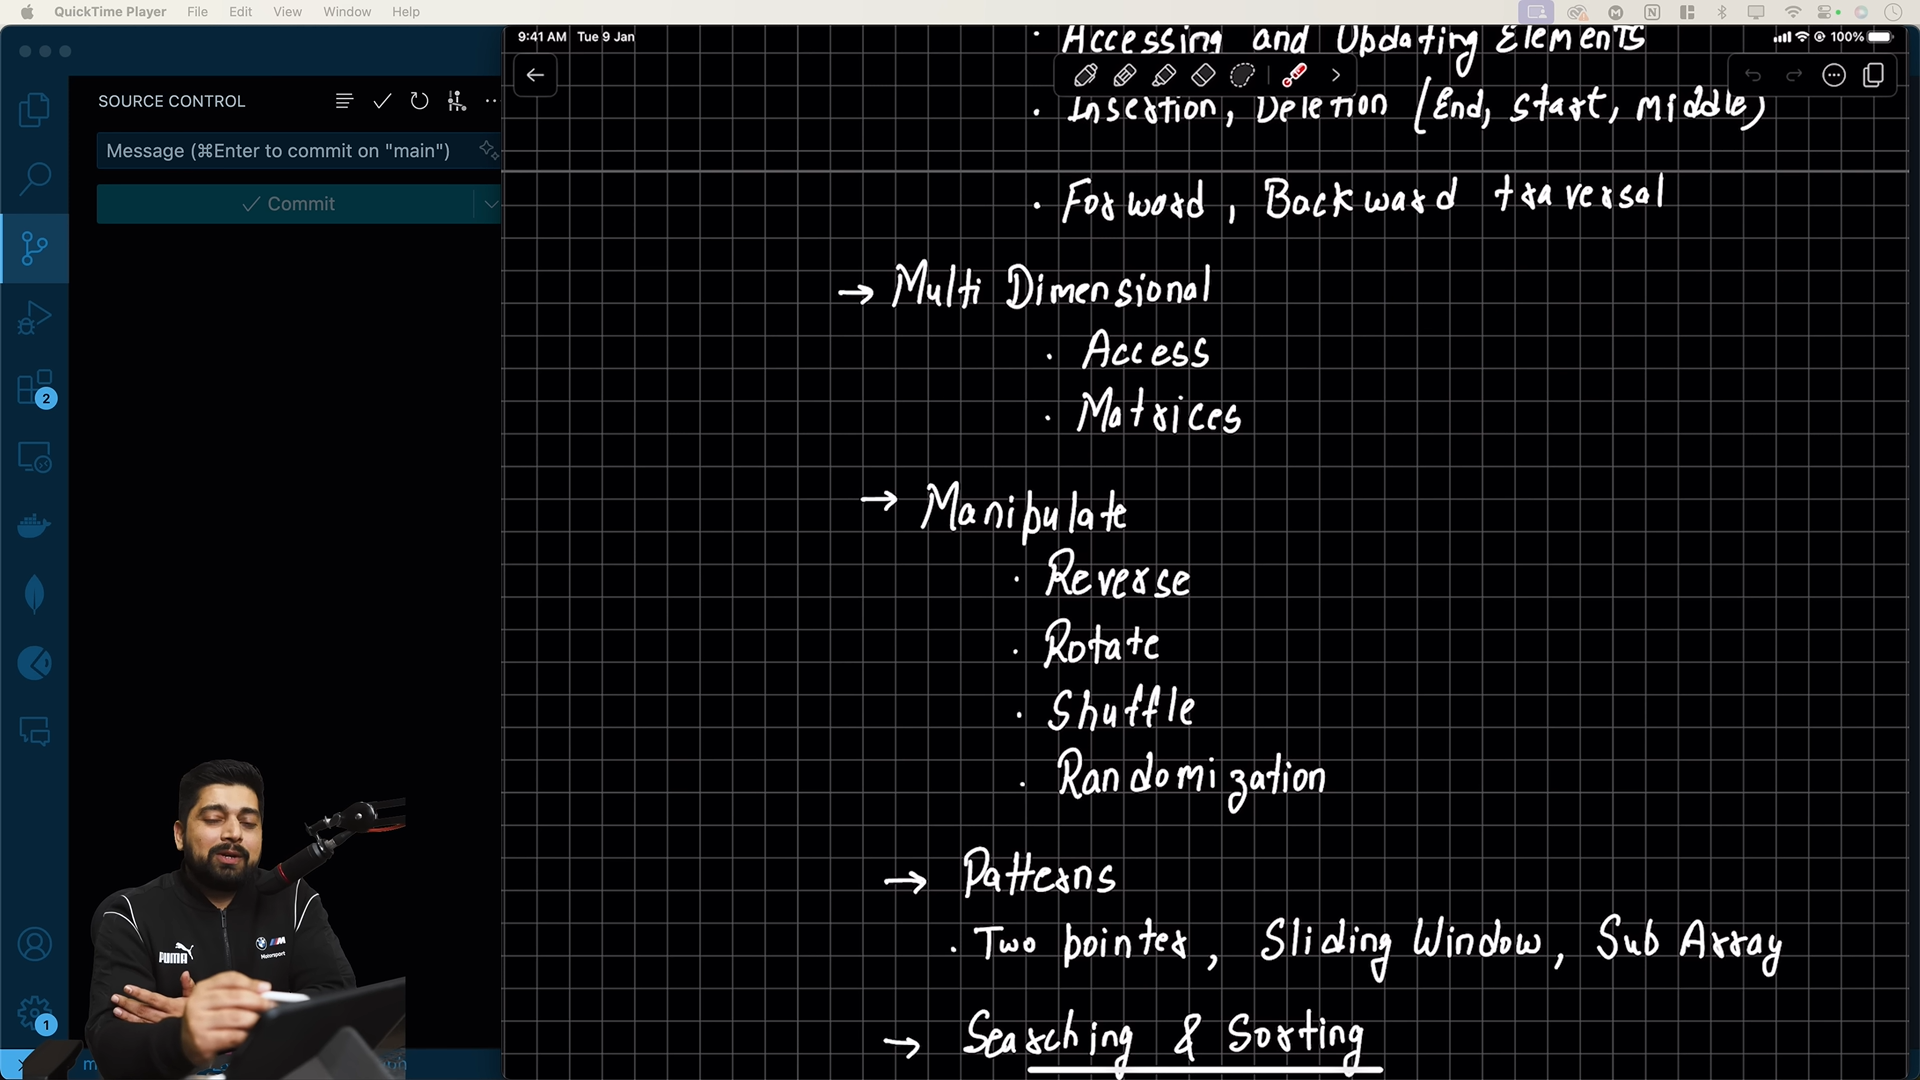 QuickTime Player File Edit View Window Help
9:41 AM Tue 9 Jan
100%
SOURCE CONTROL
Message (⌘Enter to commit on "main")
Commit
2
1
PUMA
M
Motorsport
Accessing and Updating Elements
Insertion, Deletion (End, Start, Middle)
Forword, Backward traversal
→ Multi Dimensional
· Access
· Matrices
→ Manipulate
· Reverse
· Rotate
· Shuffle
· Randomization
→ Patterns
· Two pointer, Sliding Window, Sub Array
→ Searching & Sorting